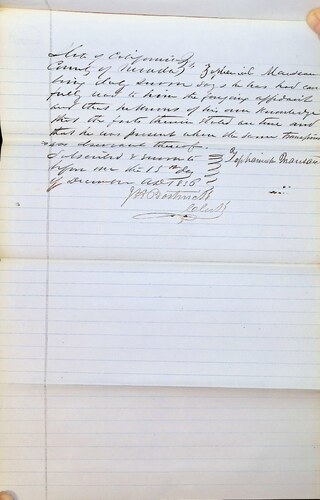 State of California
County of Nevada } ss Zepheniah Mawson
being duly sworn says he has had care
fully read to him the foregoing affidavit
and that he knows of his own knowledge
that the facts therein stated are true and
that he was present when the same transpired
as deponent thereof
Subscribed & sworn to
before me the 15th day
of December AD 1856
Zephaniah
Clerk